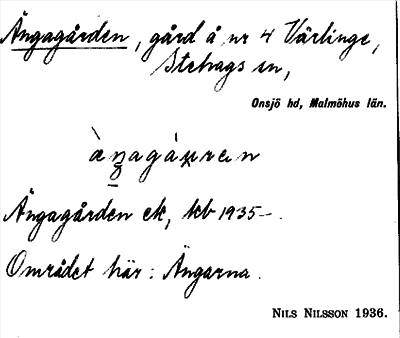 Ängagården, gård å nr 4 Värlinge,
Stehags sn,
Onsjö hd, Malmöhus län.
Ängagården ek, kb 1935-.
Området här: Ängarna.
NILS NILSSON 1936.